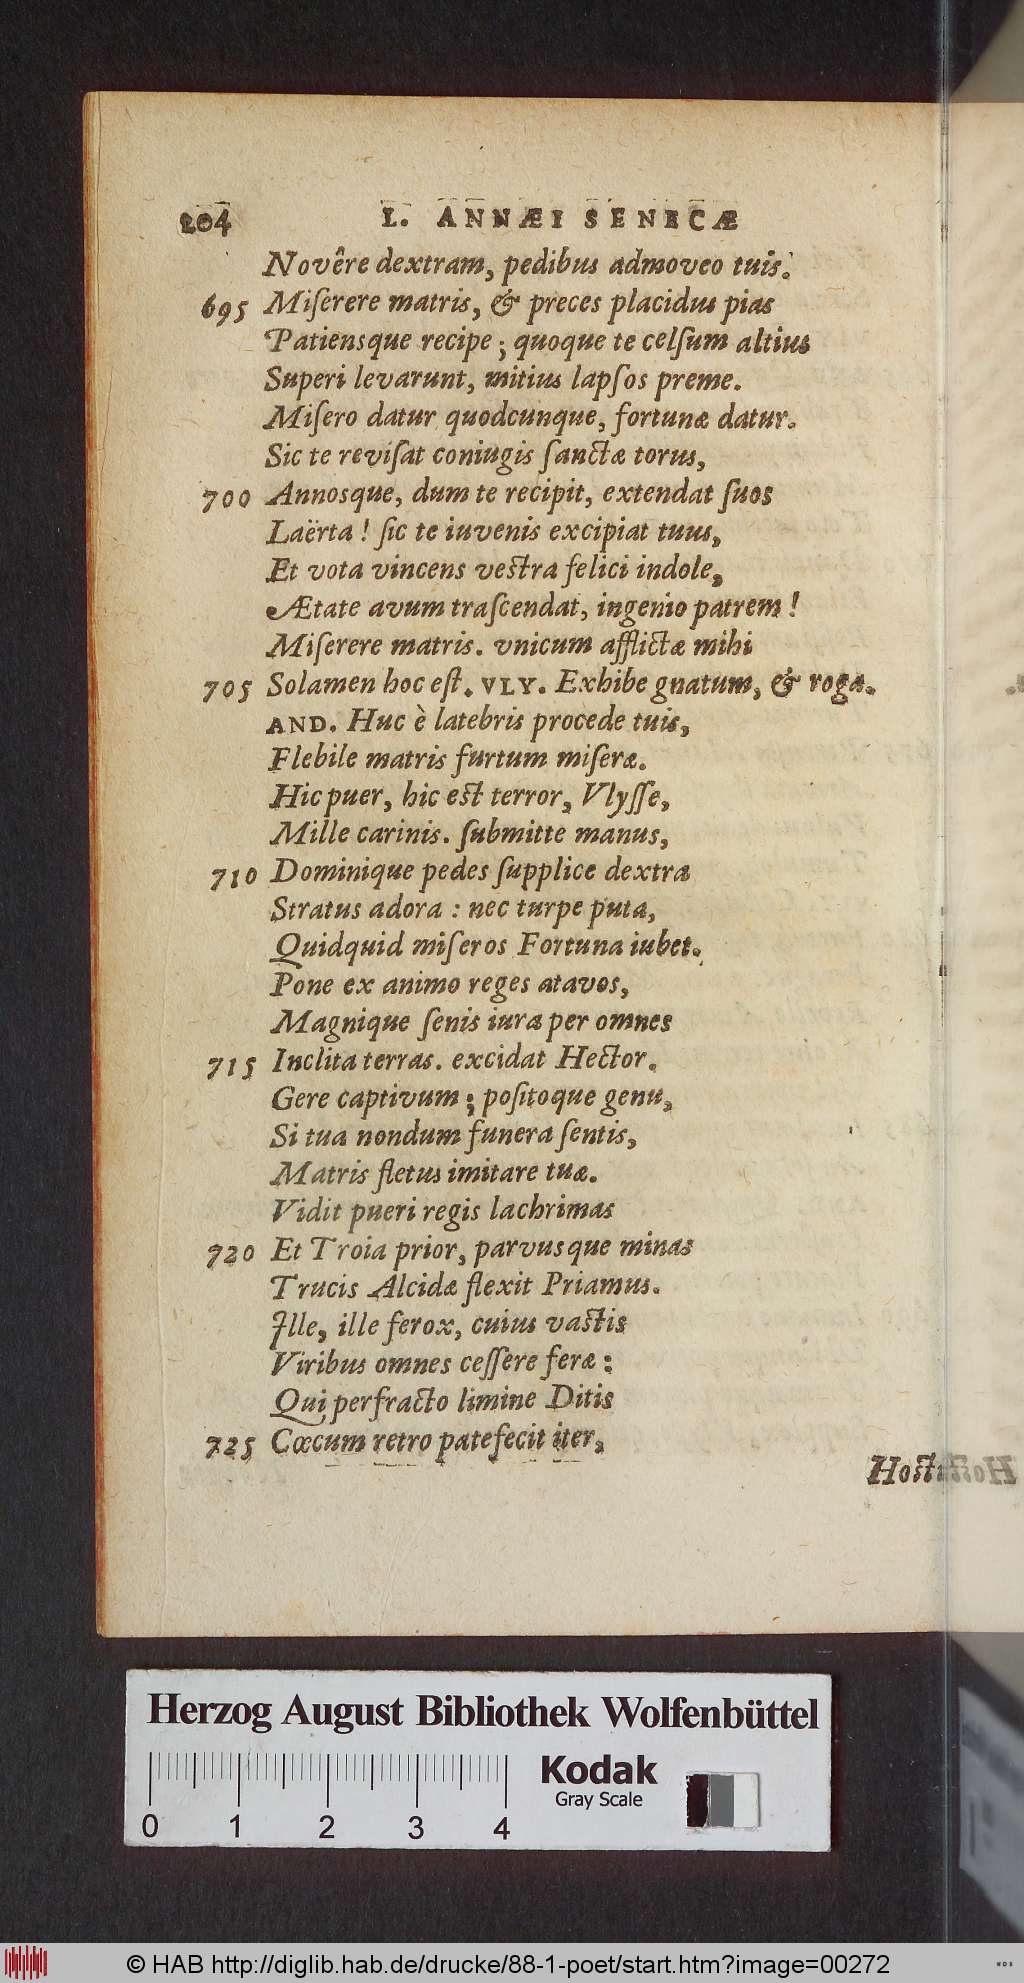 204 L. ANNÆI SENECÆ
Novêre dextram, pedibus admoveo tuis.
695 Miſerere matris, & preces placidus pias
Patiensque recipe; quoque te celſum altius
Superi levarunt, mitius lapſos preme.
Miſero datur quodcunque, fortunæ datur.
Sic te reviſat coniugis ſanctæ torus,
700 Annosque, dum te recipit, extendat ſuos
Laërta! ſic te iuvenis excipiat tuus,
Et vota vincens veſtra felici indole,
Ætate avum traſcendat, ingenio patrem!
Miſerere matris. vnicum afflictæ mihi
705 Solamen hoc eſt. VLY. Exhibe gnatum, & roga.
AND. Huc è latebris procede tuis,
Flebile matris furtum miſeræ.
Hic puer, hic eſt terror, Vlyſſe,
Mille carinis. ſubmitte manus,
710 Dominique pedes ſupplice dextra
Stratus adora: nec turpe puta,
Quidquid miſeros Fortuna iubet.
Pone ex animo reges atavos,
Magnique ſenis iura per omnes
715 Inclita terras. excidat Hector.
Gere captivum; poſitoque genu,
Si tua nondum funera ſentis,
Matris fletus imitare tuæ.
Vidit pueri regis lachrimas
720 Et Troia prior, parvusque minas
Trucis Alcidæ flexit Priamus.
Ille, ille ferox, cuius vaſtis
Viribus omnes ceſſere feræ:
Qui perfracto limine Ditis
725 Cœcum retro patefecit iter,
Herzog August Bibliothek Wolfenbüttel
Kodak
Gray Scale
0 1 2 3 4
© HAB http://diglib.hab.de/drucke/88-1-poet/start.htm?image=00272